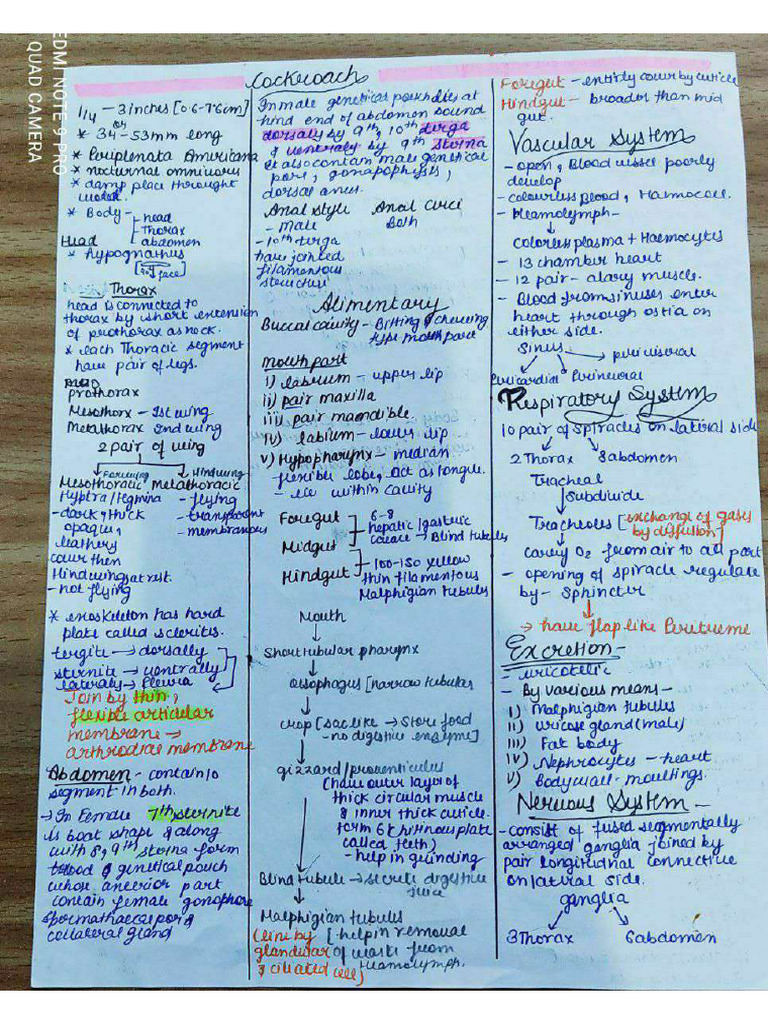 REDMI NOTE 9 PRO
QUAD CAMERA
Cockroach
1/4 - 3 inches [0.6-7.6cm]
or
* 34 - 53mm long
* Periplenata Americana
* nocturnal omnivors
* damp place throught
world.
* Body - head
Thorax
abdomen
Head
* hypognathus
Thorax
head is connected to
thorax by short extension
of prothorax as neck.
* each Thoracic segment
have pair of legs.
prothorax
Mesothorx - 1st wing
Metathorax 2nd wing
2 pair of wing
Forewing Hindwing
Mesothoracic metathoracic
Elytra/tegmina - flying
- dark, thick - transparent
opaque, - membranous
leathery
cover then
Hindwing at rest.
- not flying
* exoskeleton has hard
plate called sclerites.
tergite → dorsally
sternite → ventrally
lateraly → Pleura
Join by thin,
flexible articular
membrane →
arthrodial membrane
Abdomen - contain 10
segment in both.
→ In Female 7th sternite
is boat shape & along
with 8, 9th sterna form
blood & genetical pouch
whose anterior part
contain female gonophore
spermathaecal pore &
collateral gland
In male genetical pouch lies at
hind end of abdomen bound
dorsally by 9th, 10th terga
& ventraly by 9th sterna
et also contain male genetical
pore, gonapophysis,
dorsal anus.
Anal style Anal cerci
- Male Both
- 10th terga
have joined
filamentous
structure
Alimentary
Buccal cavity - Bitting & chewing
type mouth part
Mouth part
i) labrum - upper lip
ii) pair maxilla
iii) pair mandible.
iv) labium - lower lip
v) Hypopharynx - median
flexible lobe, act as tongue.
- lie within cavity
Foregut 6-8
hepatic/gastric
Midgut caeace → Blind tubules
Hindgut 100-150 yellow
thin filamentous
Malphigian tubules
Mouth
Short tubular pharynx
Oesophagus [narrow tubules
crop [sac like → store food
- no digestive enzyme]
gizzard/proventiculus
[have outer layer of
thick circular muscle
& inner thick cuticle
form 6 chitinous plate
called teeth)
- help in grinding
Blind tubule → secrete digestive
juice
Malphigian tubules
(line by [help in removal
glandular of waste from
& ciliated cell] Heamolymph.
Foregut - entirly cover by cuticle
Hindgut - broader than mid
gut.
Vascular System
- open, Blood vessel poorly
develop
- colourless Blood, Haemocoel.
- Heamolymph -
colorless plasma + Haemocytes
- 13 chamber heart
- 12 pair - alary muscle.
- Blood from sinuses enter
heart through ostia on
either side.
Sinus → perivisceral
Pericardial Perineural
Respiratory System
10 pair of spiracles on lateral side
2 Thorax 8 abdomen
Tracheal
Subdivide
Tracheoles [exchange of gases
by diffusion]
carry O2 from air to all part
- opening of spiracle regulate
by - Sphincter
→ have flap like Peritreme
Excretion -
- uricotelic
- By various means -
i) Malphigian tubules
ii) uricose gland (male)
iii) Fat body
iv) Nephrocytes - heart
v) Body wall - moultings.
Nervous System -
- consist of fused segmentally
arranged ganglia joined by
pair longitudinal connective
on lateral side.
ganglia
3 Thorax 6 abdomen